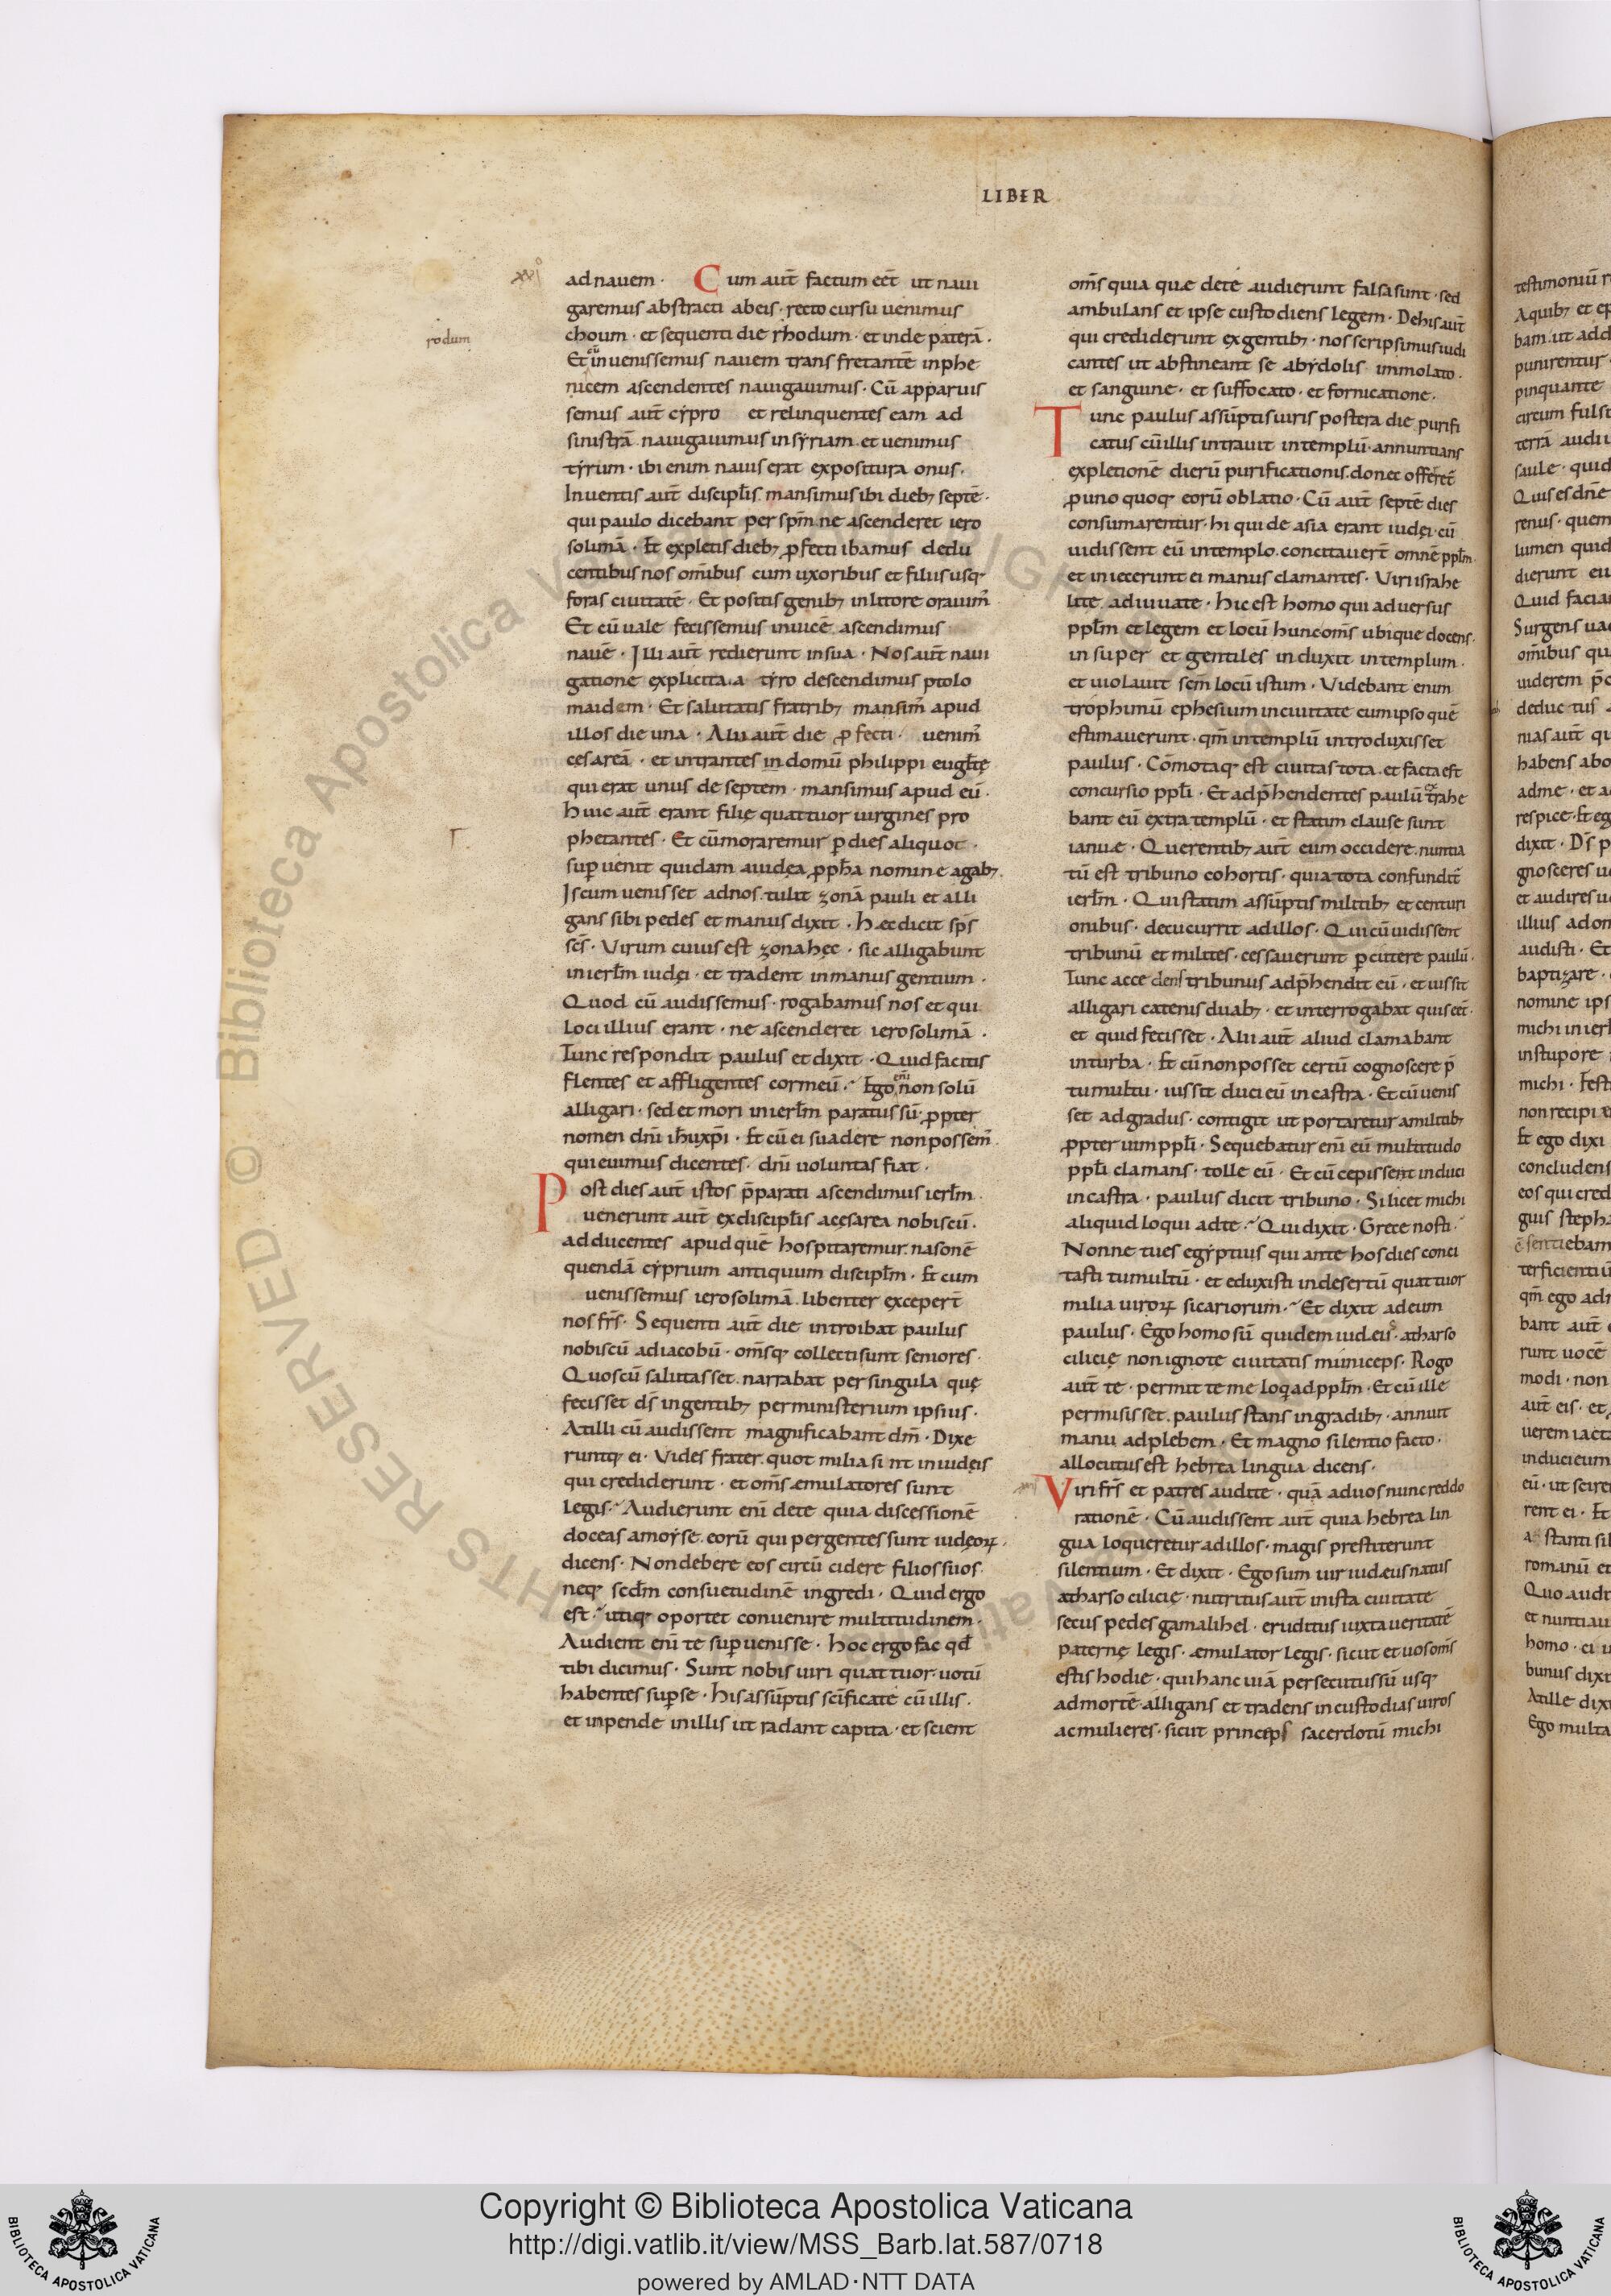 LIBER
xxi°
ad nauem · Cum aut̄ factum eēt ut naui
garemus abstracti abeis · recto cursu uenimus
choum · et sequenti die rhodum · et inde paterā ·
rodum
Et cū inuenissemus nauem transfretantē inphe
nicem ascendentes nauigauimus · Cū apparuis
semus aut̄ cẏpro et relinquentes eam ad
sinistrā nauigauimus in sẏriam et uenimus
tẏrum · ibi enim nauis erat expositura onus ·
Inuentis aut̄ discipl̄is mansimus ibi dieb; septē ·
qui paulo dicebant per sp̄m ne ascenderet iero
solimā · Et expletis dieb; ꝓfecti ibamus dedu
centibus nos om̄ibus cum uxoribus et filiis usq·
foras ciuitatē · Et positis genib; in litore orauim̄
Et cū uale fecissemus inuicē ascendimus
nauē · Illi aut̄ redierunt in sua · Nos aut̄ naui
gatione explicita · a tẏro descendimus ptolo
maidem · Et salutatis fratrib; mansim̄ apud
illos die una · Alii aut̄ die ꝓfecti · uenim̄
cesareā · et intrantes in domū philippi eugl̄tę
qui erat unus de septem · mansimus apud eū ·
huic aut̄ erant filię quattuor uirgines pro
phetantes · Et cū moraremur ꝑ dies aliquot ·
supuenit quidam a iudęa ꝓph̄a nomine agab;
Is cum uenisset ad nos · tulit zonā pauli et alli
gans sibi pedes et manus dixit · Hęc dicit sp̄s
sc̄s · Virum cuius est zona hęc · sic alligabunt
in ierl̄m iudęi · et tradent in manus gentium ·
Quod cū audissemus · rogabamus nos et qui
loci illius erant · ne ascenderet ierosolimā ·
Tunc respondit paulus et dixit · Quid facitis
flentes et affligentes cor meū · Ego eni non solū
alligari · sed et mori in ierl̄m paratus sū · ꝓpter
nomen dn̄i ih̄u xp̄i · Et cū ei suadere non possem̄ ·
quieuimus dicentes · dn̄i uoluntas fiat ·
Post dies aut̄ istos p̄parati ascendimus ierl̄m
uenerunt aut̄ ex discipl̄is a cęsarea nobiscū ·
adducentes apud quē hospitaremur · nasonē
quendā cẏprium antiquum discipl̄m · Et cum
uenissemus ierosolimā · libenter excepert̄
nos fr̄s · Sequenti aut̄ die introibat paulus
nobiscū ad iacobū · om̄sq· collecti sunt seniores ·
Quos cū salutasset · narrabat per singula quę
fecisset d̄s in gentib; per ministerium ipsius ·
At illi cū audissent magnificabant dm̄ · Dixe
runtq· ei · Vides frater quot milia sint in iudęis
qui crediderunt · et om̄s æmulatores sunt
legis · Audierunt eni dete quia discessionē
doceas a moẏse eorū qui per gentes sunt iudęoꝝ ·
dicens · Non debere eos circū cidere filios suos
neq· sedm̄ consuetudinē ingredi · Quid ergo
est · utiq· oportet conuenire multitudinem ·
Audient eni te supuenisse · Hoc ergo fac qd̄
tibi dicimus · Sunt nobis uiri quattuor · uotū
habentes sup se · His assūptis sc̄ifica te cū illis ·
et inpende in illis ut radant capita · et scient
om̄s quia quæ dete audierunt falsa sunt · sed
ambulans et ipse custodiens legem · De his aut̄
qui crediderunt ex gentib; · nos scripsimus iudi
cantes ut abstineant se abẏdolis immolato ·
et sanguine · et suffocato · et fornicatione ·
Tunc paulus assūptis uiris postera die purifi
catus cū illis intrauit in templū · annuntians
expletionē dierū purificationis · donec offeret̄
ꝓ uno quoq· eorū oblatio · Cū aut̄ septē dies
consumarentur · hi qui de asia erant iudęi · cū
uidissent eū in templo · concitauert̄ omnē ppl̄m
et iniecerunt ei manus clamantes · Viri israhe
litę adiuuate · Hic est homo qui aduersus
ppl̄m et legem et locū hunc om̄s ubique docens ·
in super et gentiles induxit in templum ·
et uiolauit sc̄m locū istum · Videbant enim
trophimū ephesium in ciuitate cum ipso quē
estimauerunt · qm̄ in templū introduxisset
paulus · Cōmotaq· est ciuitas tota · et facta est
concursio ppl̄i · Et adp̄hendentes paulū trahe
bant eū extra templū · et statim clause sunt
ianuæ · Querentib; aut̄ eum occidere · nuntia
tū est tribuno cohortis · quia tota confundit̄
ierl̄m · Qui statim assūptis militib; et centuri
onibus · decucurrit ad illos · Qui cū uidissent
tribunū et milites · cessauerunt ꝑcutere paulū ·
Tunc accedens tribunus adp̄hendit eū · et iussit
alligari catenis duab; · et interrogabat quis eēt ·
et quid fecisset · Alii aut̄ aliud clamabant
in turba · Et cū non posset certū cognoscere p̄
tumultu · iussit duci eū in castra · Et cū uenis
set ad gradus · contigit ut portaretur a militib;
ꝓpter uim ppl̄i · Sequebatur eni eū multitudo
ppl̄i clamans · tolle eū · Et cū cepissent induci
in castra · paulus dicit tribuno · Si licet michi
aliquid loqui ad te · Qui dixit · Grece nosti ·
Nonne tu es egẏptius qui ante hos dies conci
tasti tumultū · et eduxisti in desertū quattuor
milia uiroꝝ sicariorum · Et dixit ad eum
paulus · Ego homo sū quidem iudeus · a tharso
cilicię non ignotę ciuitatis municeps · Rogo
aut̄ te · permitte me loqi ad ppl̄m · Et cū ille
permisisset · paulus stans in gradib; · annuit
manu ad plebem · Et magno silentio facto ·
allocutus est hebrea lingua dicens ·
Viri fr̄s et patres audite · quā aduos nunc reddo
rationē · Cū audissent aut̄ quia hebrea lin
gua loqueretur ad illos · magis prestiterunt
silentium · Et dixit · Ego sum uir iudeus natus
a tharso cilicię · nutritus aut̄ in ista ciuitate
secus pedes gamalihel · eruditus iuxta ueritatē
paternę legis · æmulator legis · sicut et uos om̄s
estis hodie · qui hanc uiā persecutus sū usq·
ad mortē alligans et tradens in custodias uiros
ac mulieres · sicut princeps sacerdotū michi
Copyright © Biblioteca Apostolica Vaticana
http://digi.vatlib.it/view/MSS_Barb.lat.587/0718
powered by AMLAD·NTT DATA